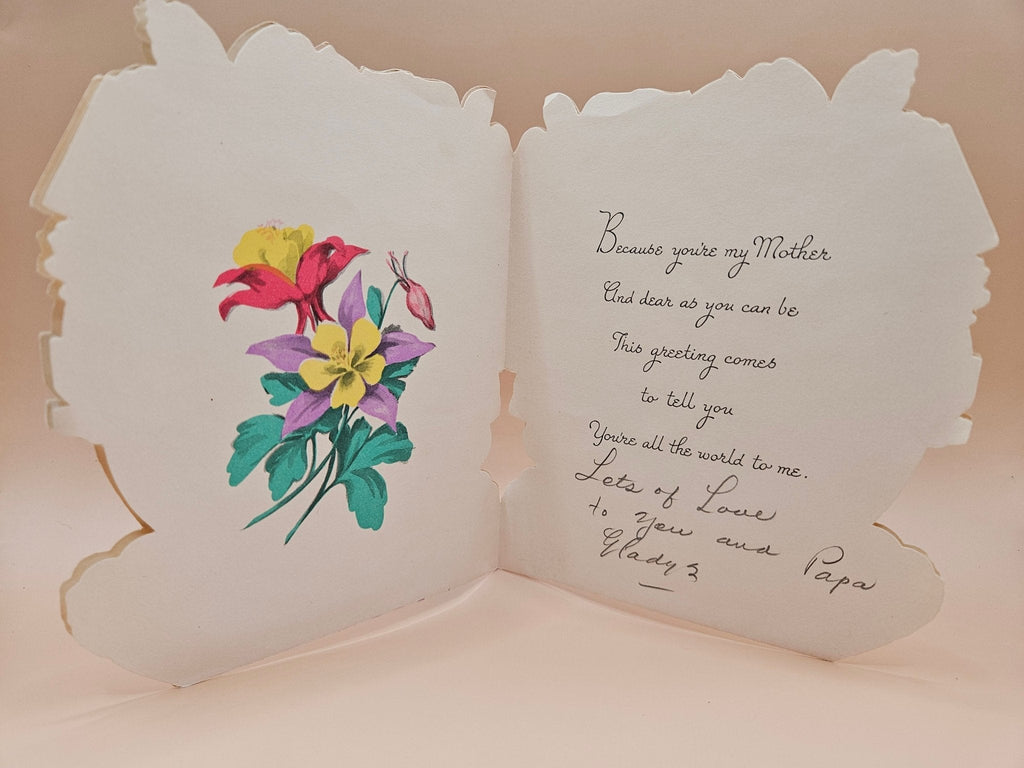 Because you're my Mother
And dear as you can be
This greeting comes
to tell you
You're all the world to me.
Lots of Love
to you and Papa
Gladys